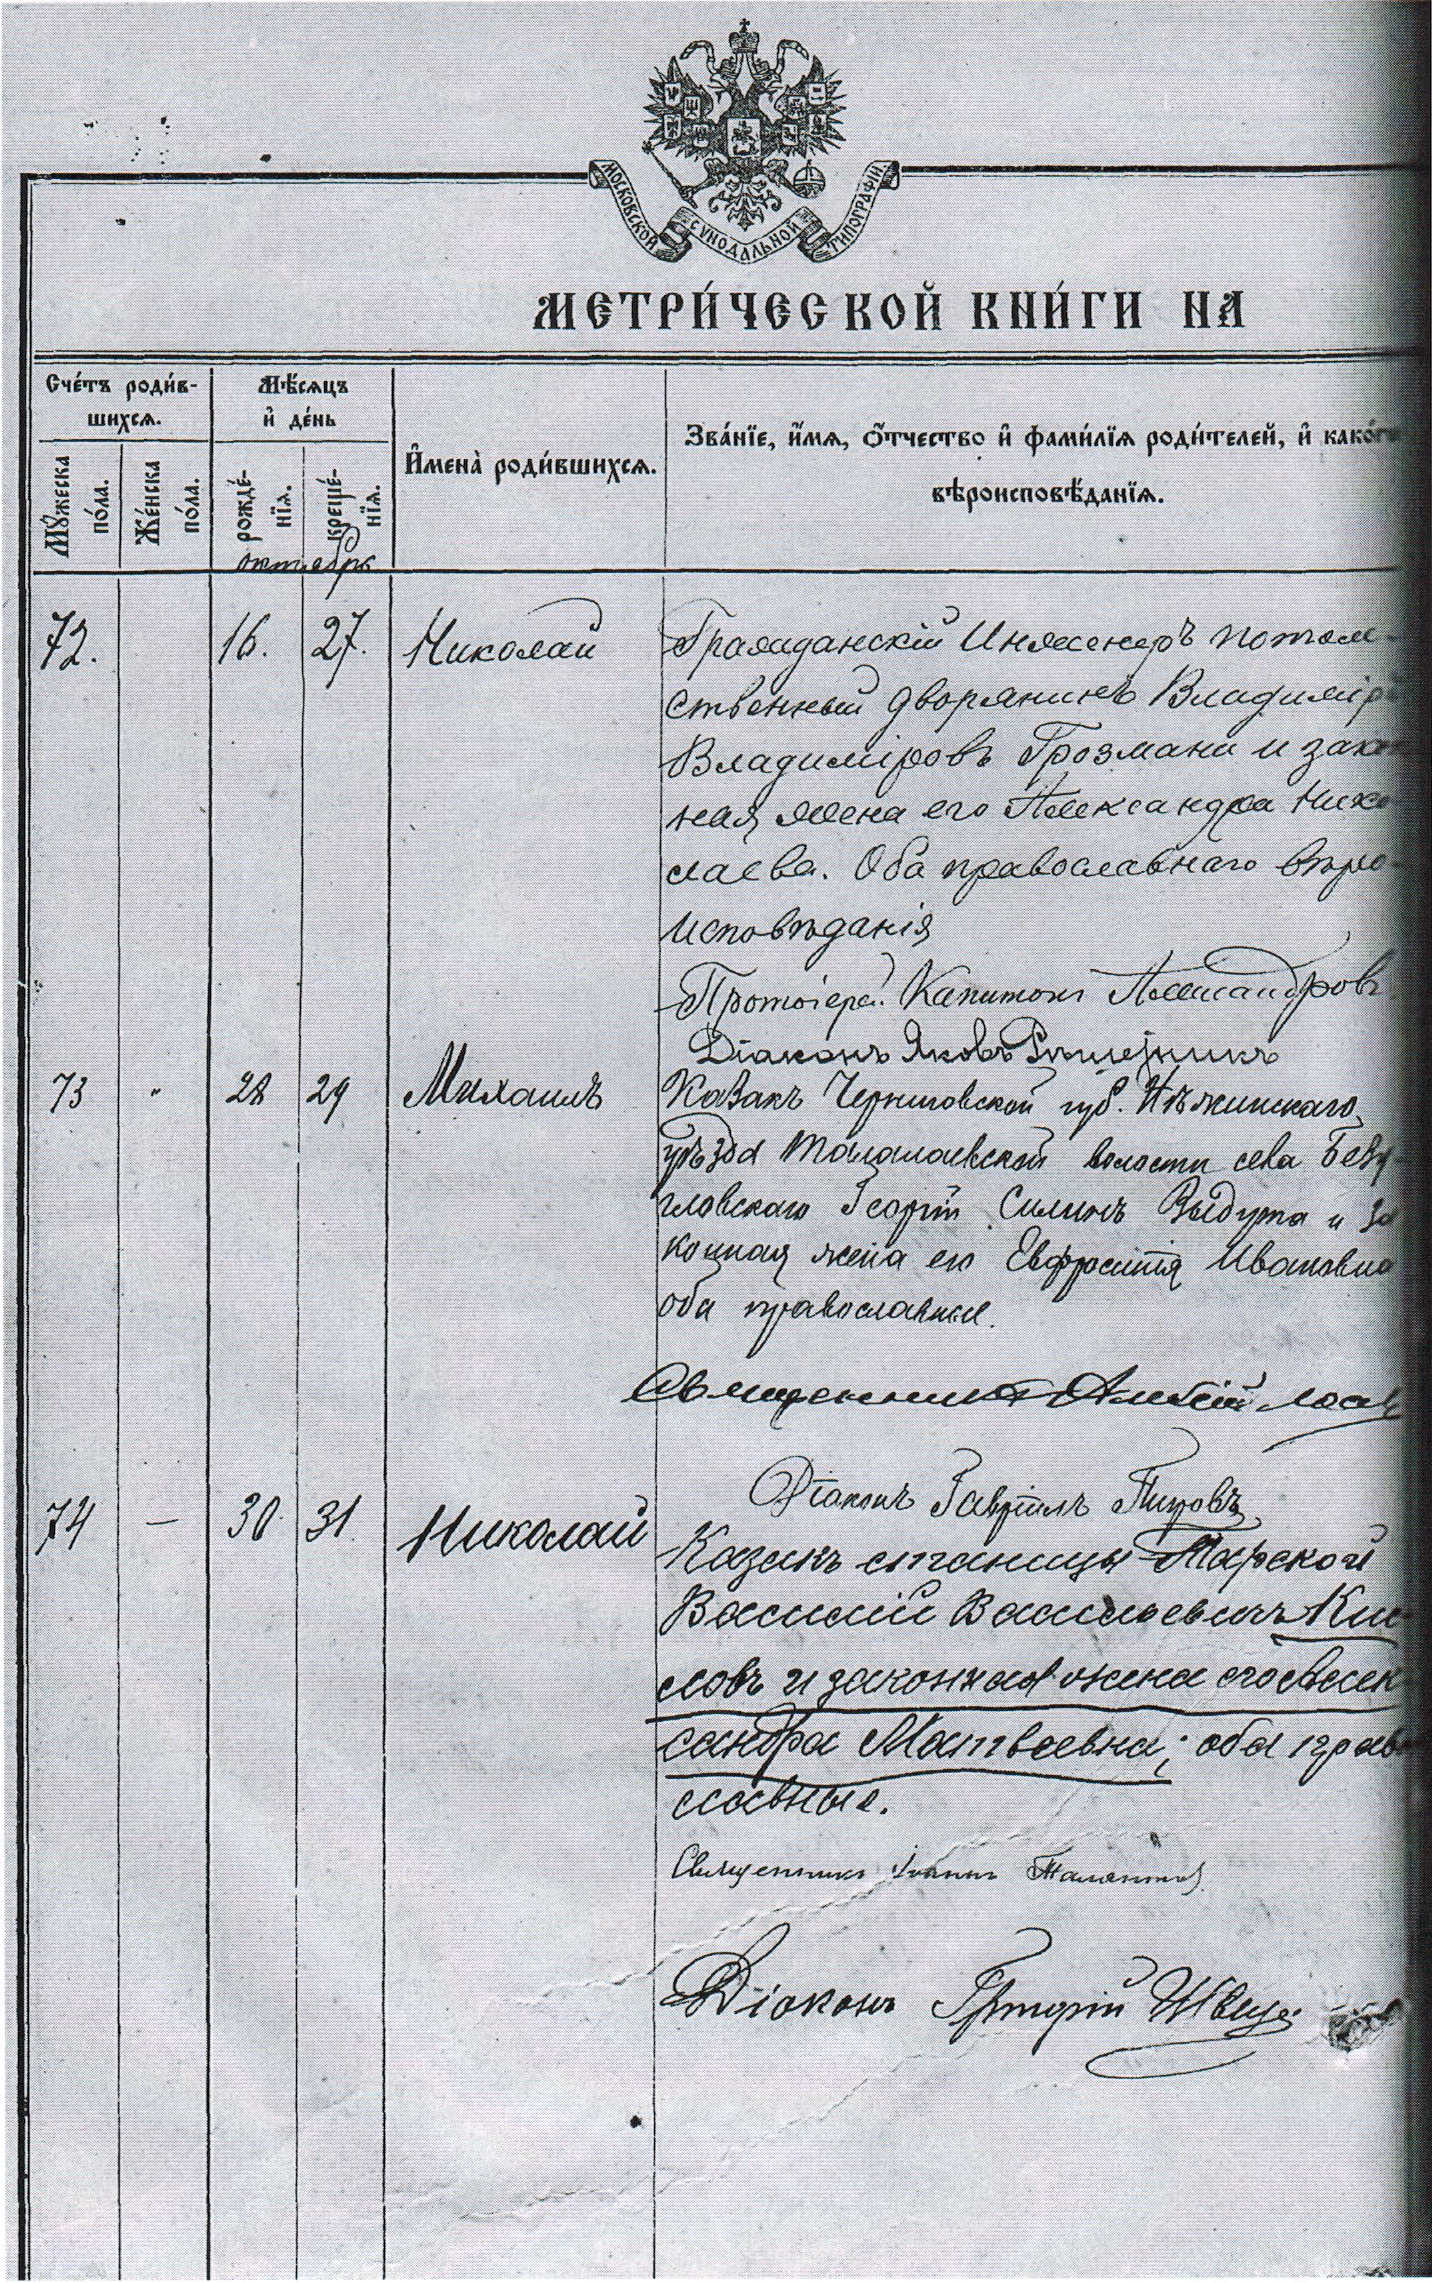 МОСКОВСКОЙ СѴНОДАЛЬНОЙ ТИПОГРАФІИ
МЕТРИ́ЧЕСКОЙ КНИ́ГИ НА
Сче́тъ роди́в-
шихсѧ.
Мѣ́сѧцъ
и҆ де́нь
И҆мена̀ роди́вшихсѧ.
Зва́нїе, и҆́мѧ, ѻ҆́тчество и҆ фами́лїѧ роди́телей, и҆ како́гѡ
вѣроисповѣ́данїѧ.
Мꙋ́жеска
по́ла.
Же́нска
по́ла.
рожде́-
нїѧ.
креще́-
нїѧ.
октябрь
72. 16. 27. Николай Гражданскій Инженеръ потом-
ственный дворянинъ Владиміръ
Владиміровъ Грозмани и закон-
ная жена его Александра Нико-
лаева. Оба православнаго вѣро-
исповѣданія
Протоіерей Капитонъ Александровъ
Діаконъ Яковъ
73 " 28 29 Михаилъ Казакъ Черниговской губ. Нѣжинскаго
уѣзда Талалаевской волости села
Георгій Силинъ Выдута и за
конная жена его Евфросинія Ивановна
оба православные.
Священникъ Алексій
Діаконъ Гавріилъ
74 — 30. 31. Николай Казакъ станицы Марской
Василій Васильевичъ Кис-
ловъ и законная жена его Алек
сандра Матвеевна; оба право
славные.
Священникъ Іоаннъ Талантов
Діаконъ Григорій Швец